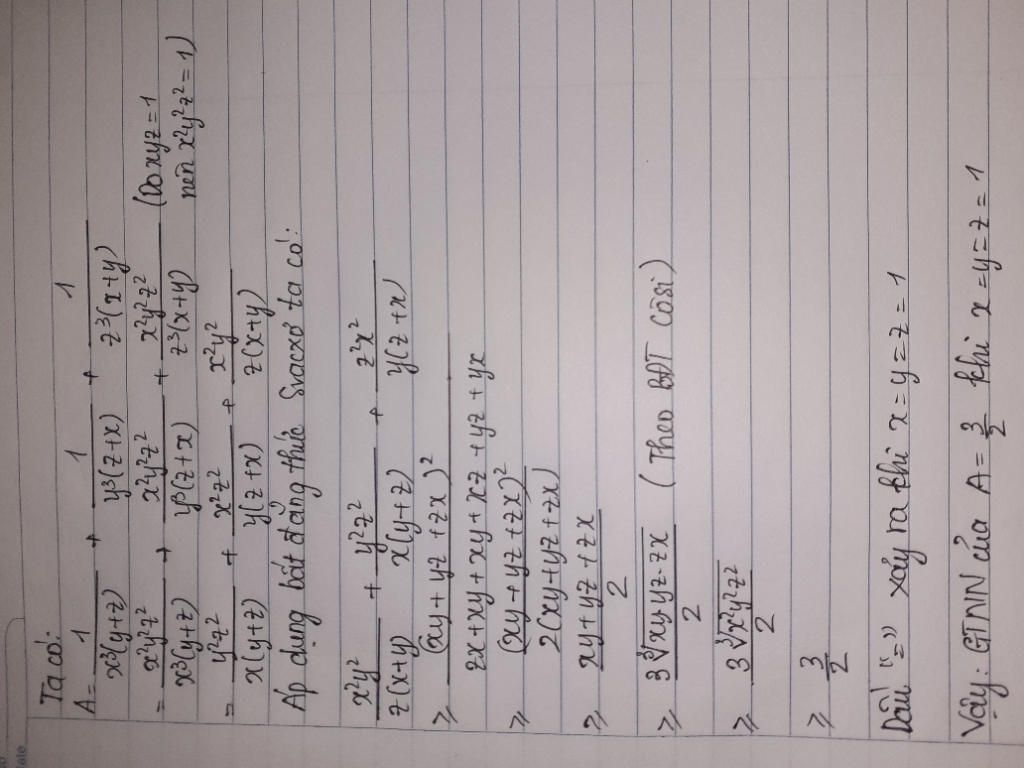 Ta có:
A = 1/x³(y+z) + 1/y³(z+x) + 1/z³(x+y)
= x²y²z²/x³(y+z) + x²y²z²/y³(z+x) + x²y²z²/z³(x+y) (Do xyz = 1 nên x²y²z² = 1)
= y²z²/x(y+z) + x²z²/y(z+x) + x²y²/z(x+y)
Áp dụng bất đẳng thức Svacxơ ta có:
x²y²/z(x+y) + y²z²/x(y+z) + z²x²/y(z+x)
≥ (xy + yz + zx)²/zx + xy + xy + xz + yz + yx
≥ (xy + yz + zx)²/2(xy + yz + zx)
≥ xy + yz + zx/2
≥ 3∛xy yz·zx/2 (Theo BĐT Côsi)
≥ 3∛x²y²z²/2
≥ 3/2
Dấu "=" xảy ra khi x = y = z = 1
Vậy: GTNN của A = 3/2 khi x = y = z = 1